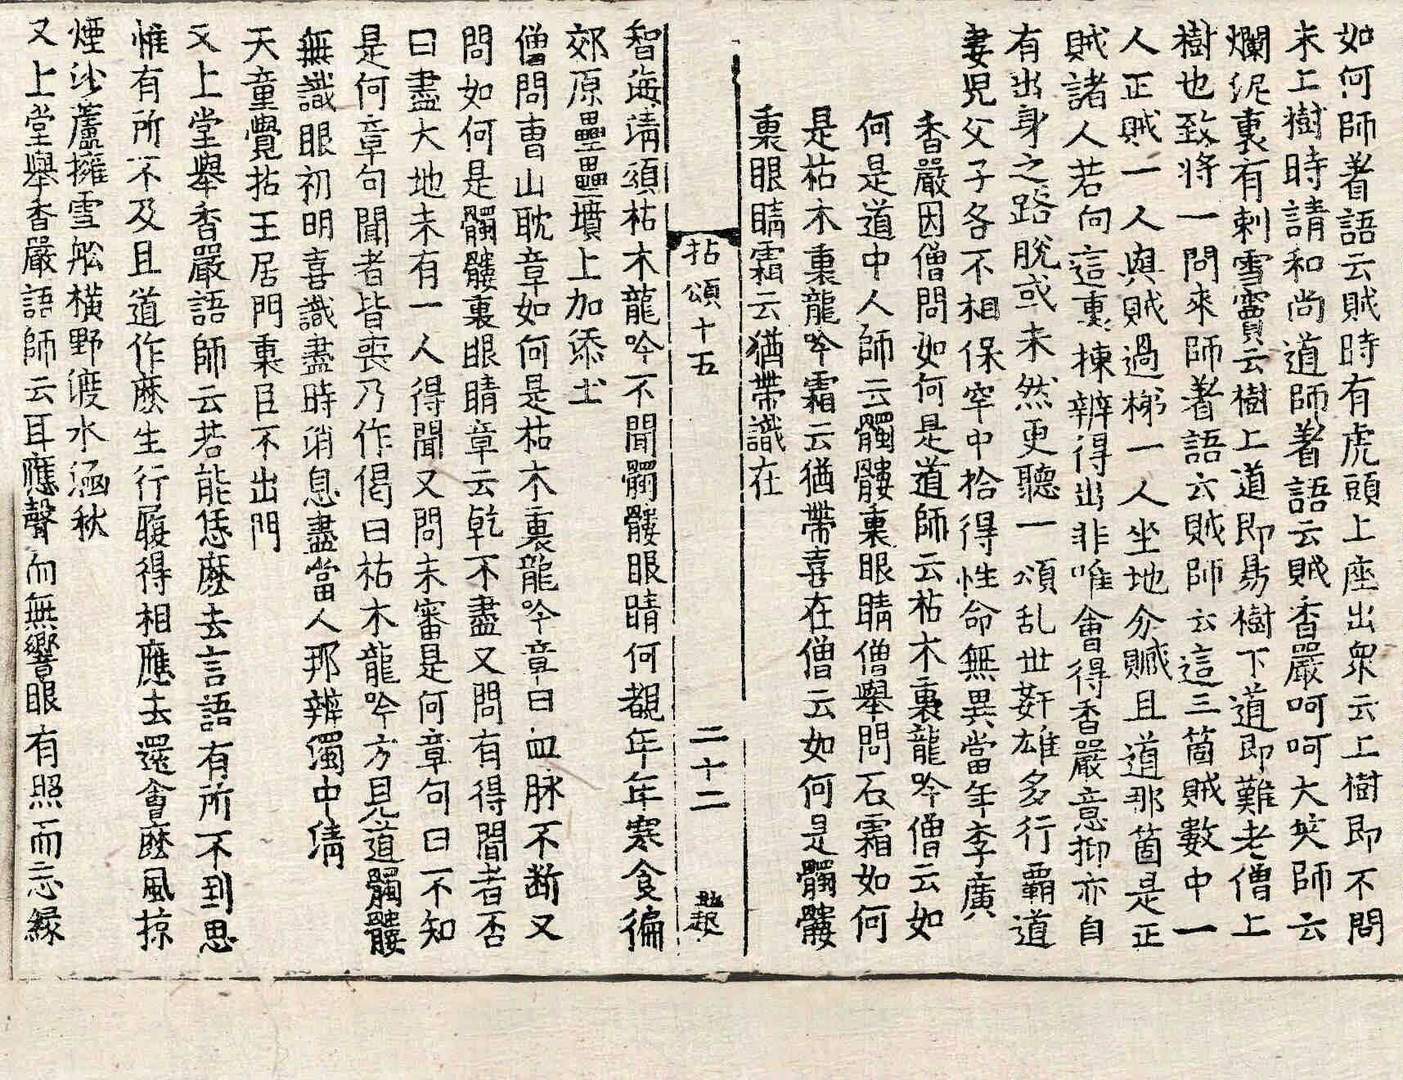 如何師著語云賊時有虎頭上座出衆云上樹即不問
未上樹時請和尚道師著語云賊香嚴呵呵大笑師云
爛泥裏有刺雪竇云樹上道即易樹下道即難老僧上
樹也致將一問來師著語云賊師云這三箇賊數中一
人正賊一人與賊過梯一人坐地分贓且道那箇是正
賊諸人若向這裏揀辨得出非唯會得香嚴意抑亦自
有出身之路脫或未然更聽一頌乱世姧雄多行覇道
妻児父子各不相保牢中拾得性命無異當年李廣
香嚴因僧問如何是道師云枯木裏龍吟僧云如
何是道中人師云髑髏裏眼睛僧舉問石霜如何
是枯木裏龍吟霜云猶帶喜在僧云如何是髑髏
裏眼睛霜云猶帶識在
拈頌十五
二十二
智海淸頌枯木龍吟不聞髑髏眼睛何覩年年寒食徧
郊原壘壘墳上加添土
僧問曹山耽章如何是枯木裏龍吟章曰血脉不断又
問如何是髑髏裏眼睛章云乾不盡又問有得聞者否
曰盡大地未有一人得聞又問未審是何章句曰不知
是何章句聞者皆喪乃作偈曰枯木龍吟方見道髑髏
無識眼初明喜識盡時消息盡當人那辨濁中淸
天童覺拈王居門裏臣不出門
又上堂舉香嚴語師云若能恁麽去言語有所不到思
惟有所不及且道作麽生行履得相應去還會麽風掠
煙沙蘆擁雪舩橫野渡水涵秋
又上堂舉香嚴語師云耳應聲而無響眼有照而忘緣